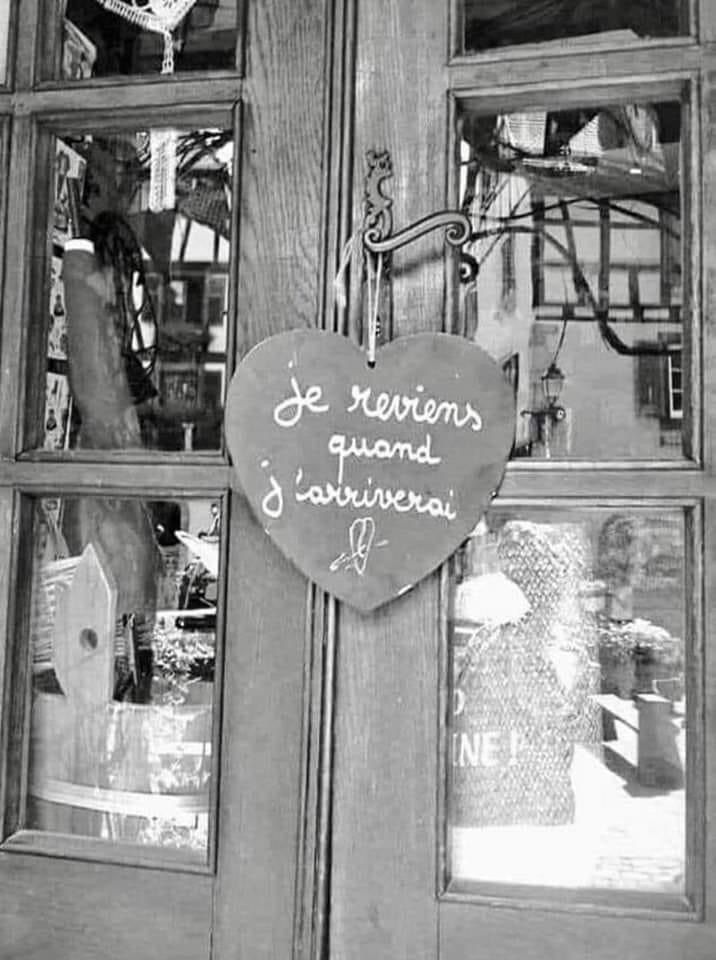 je reviens
quand
j'arriverai
INE !